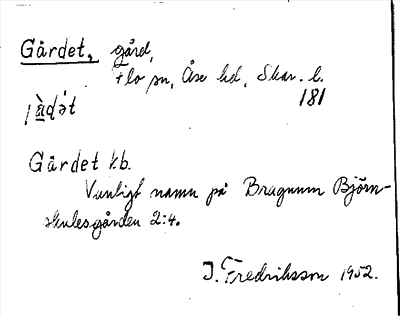 Gårdet, gård,
Flo sn, Åse hd, Skar. l.
181
Gårdet kb.
Vanligt namn på Bragnum Björn-
skulesgården 2:4.
J. Fredriksson 1952.